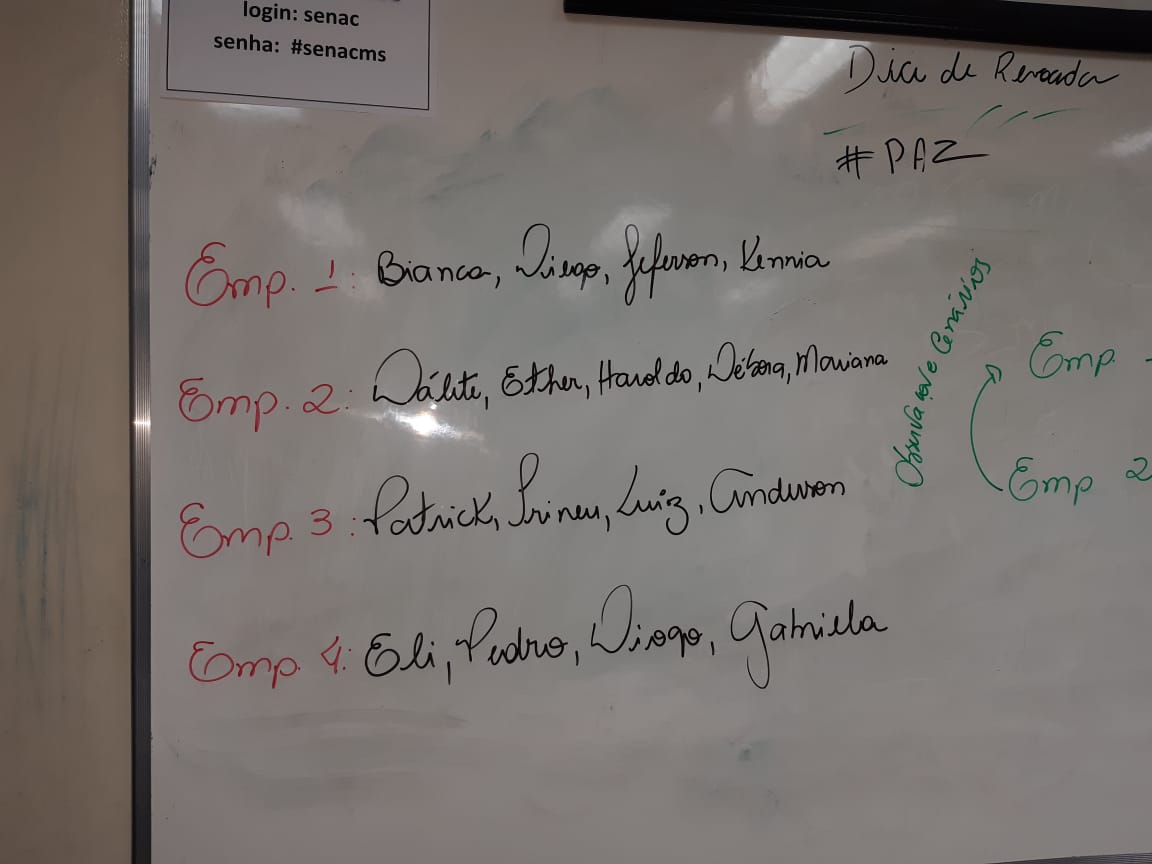 login: senac
senha: #senacms
Dia de Revoada
#PAZ
Emp. 1: Bianca, Diego, Jeferson, Kennia
Emp. 2: Dálite, Esther, Haroldo, Débora, Mariana
Emp. 3: Patrick, Irineu, Luiz, Anderson
Emp. 4: Eli, Pedro, Diogo, Gabriela
Cenários
Emp
Emp 2